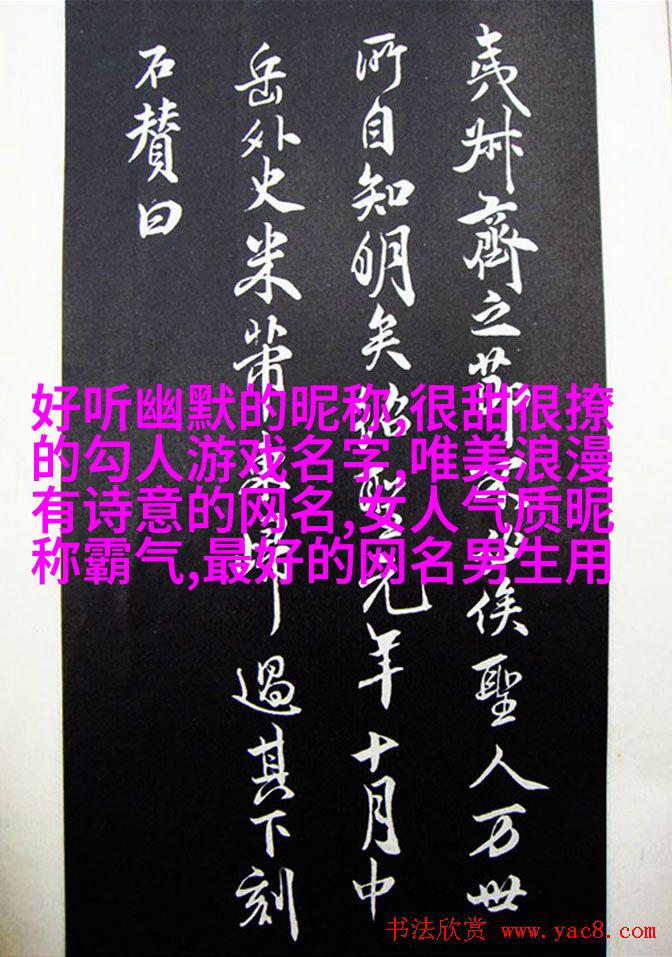 夷叔齊之節不必俟聖人万世
所自知明矣紹聖元年十月中
岳外史米芾東歸過其下刻
石賛曰
好听幽默的昵称,很甜很撩
的勾人游戏名字,唯美浪漫
有诗意的网名,女人气质昵
称霸气,最好的网名男生用
书法欣赏 www.yac8.com